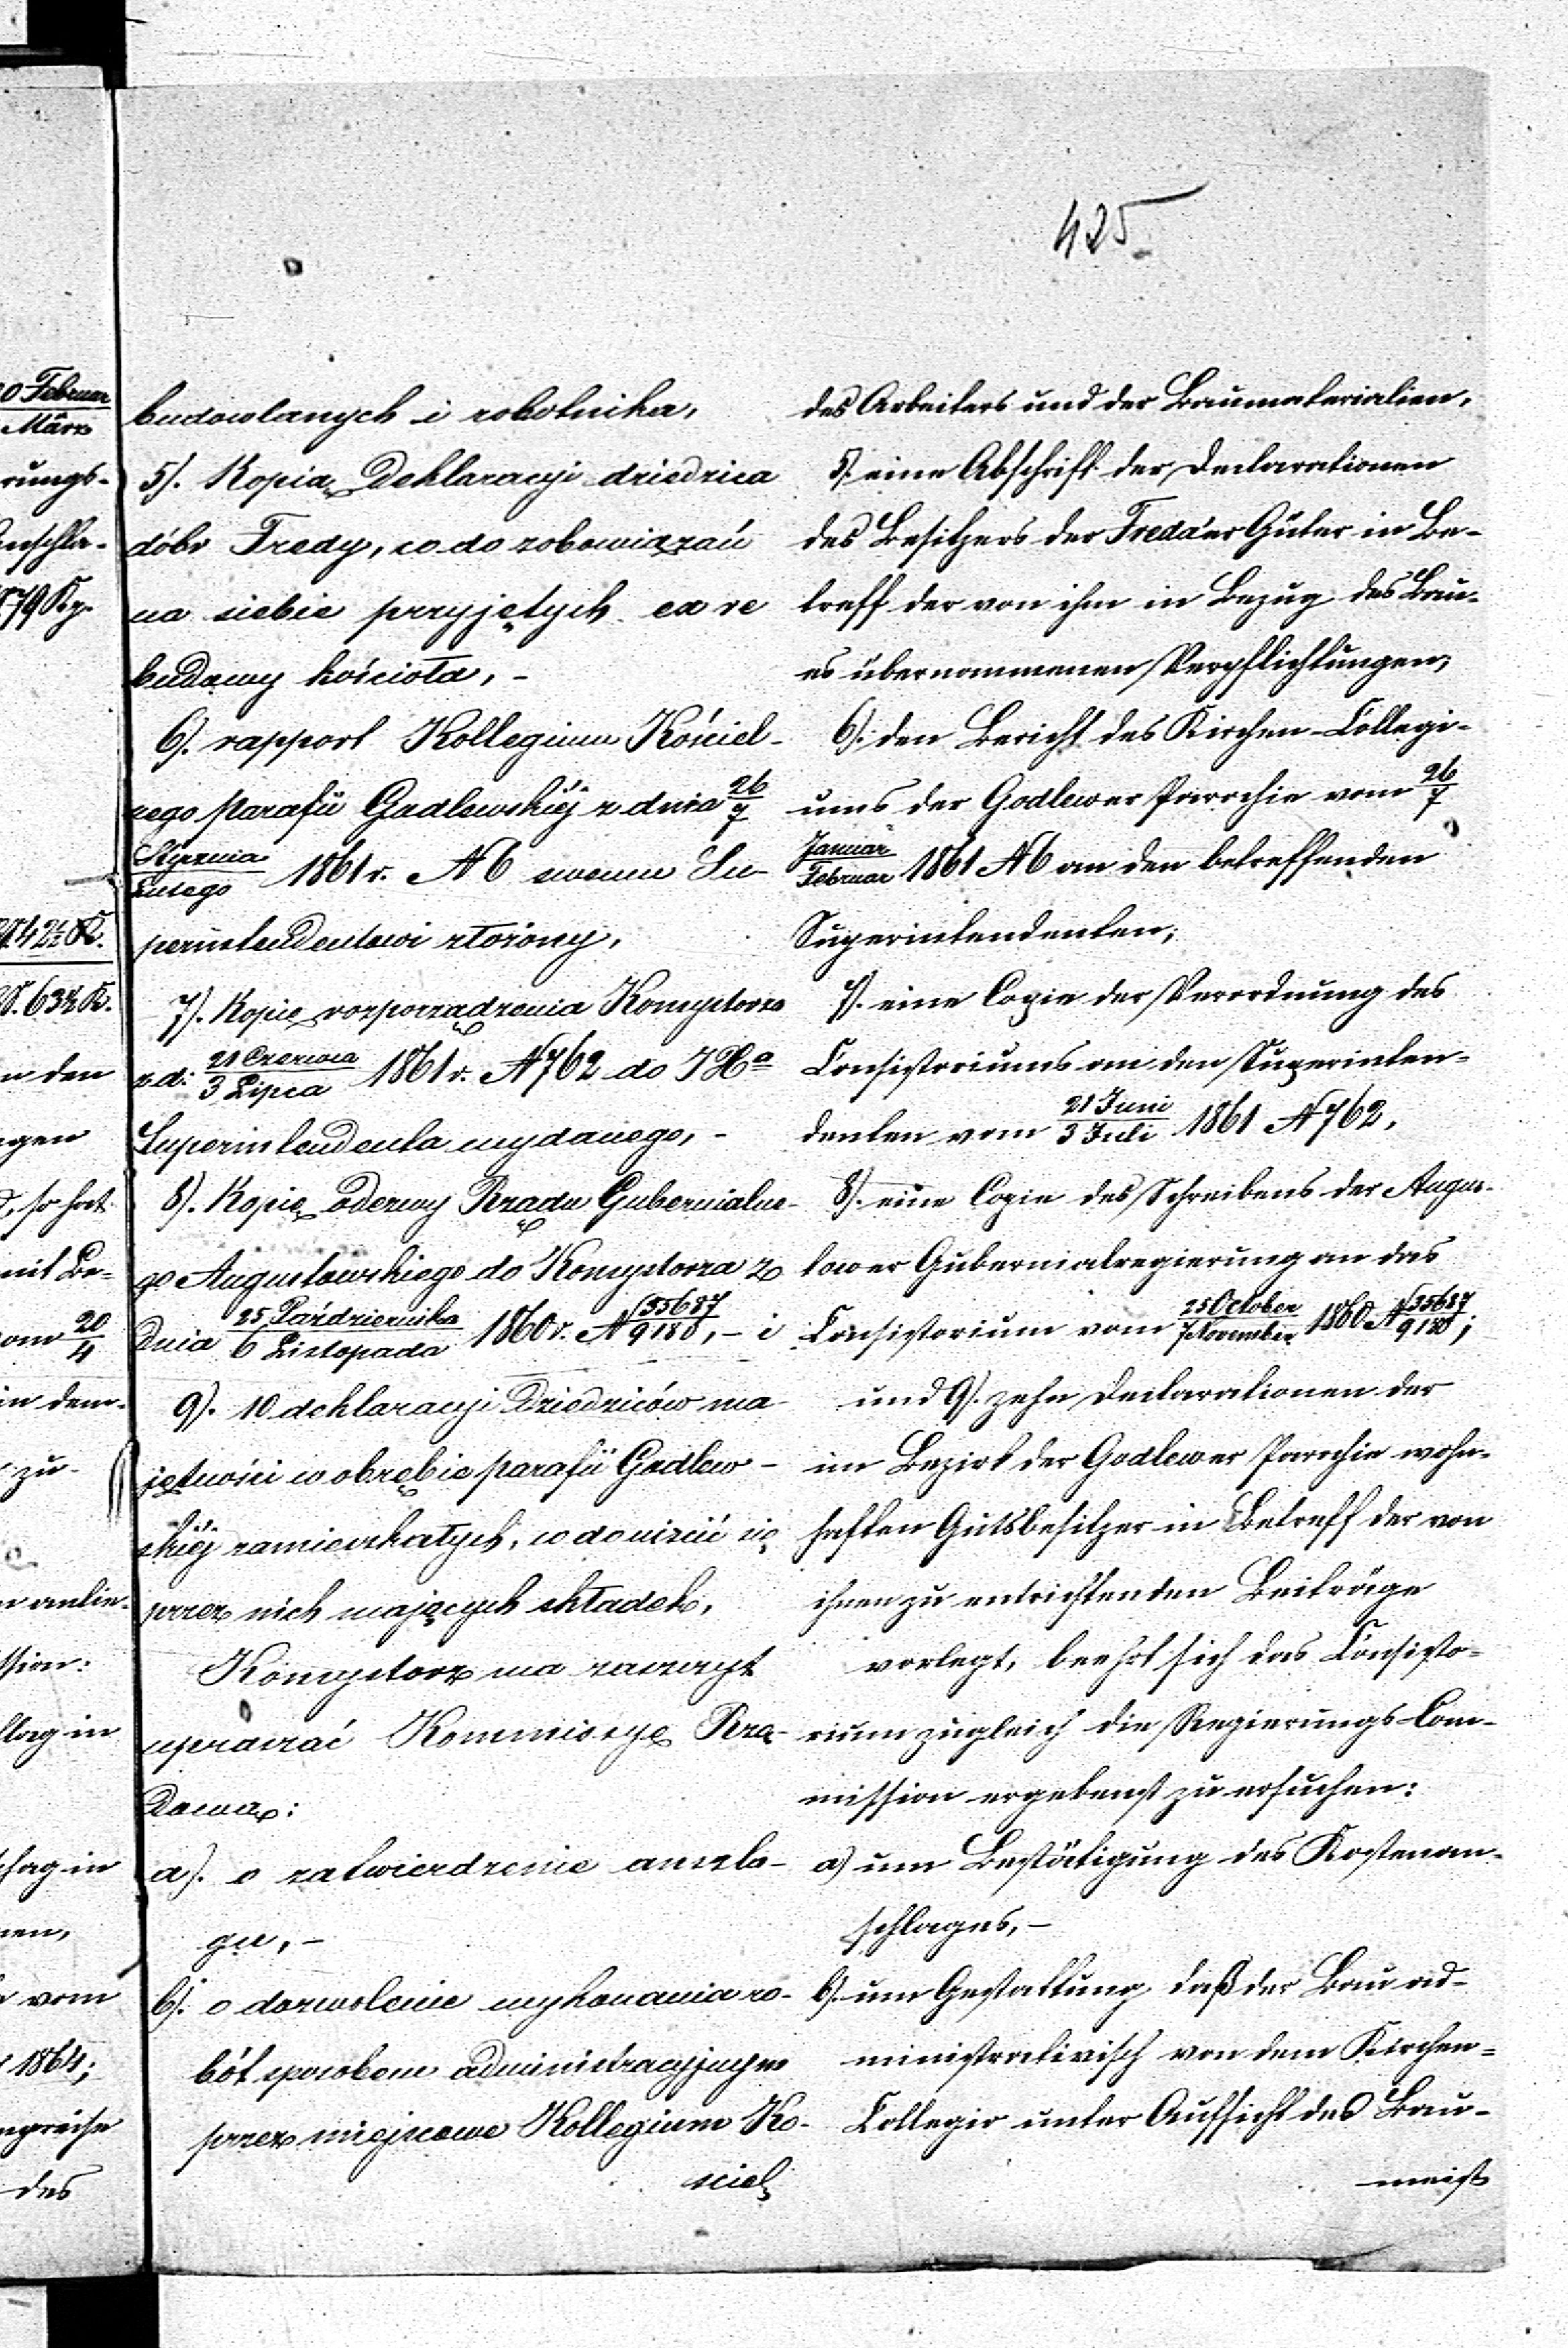 425
budowlanych i robotnika,
5). Kopia Deklaracyi dziedzica
dóbr Fredy, co do zobowiązań
na siebie przyjętych ex re
budowy kościoła, -
6). rapport Kollegium Kościel-
nego parafii Godlewskiéj z dnia 26/7
Stycznia/Lutego 1861 r. N 6 swemu Su-
perintendentowi złożony,
7). Kopię rozporządzenia Konsystorza
z d: 21 Czerwca/3 Lipca 1861 r. N 762 do JXa
Superintendenta wydanego, -
8). Kopię odezwy Rządu Gubernialne-
go Augustowskiego do Konsystorza z
Dnia 25 Października/6 Listopada 1860 r. N 35687/9180, - i
9). 10 deklaracyi Dziedziców ma-
jętności w obrębie parafii Godlew-
skiéj zamieszkałych, co do uiścić się
przez nich mających składek,
Konsystorz ma zaszczyt
upraszać Kommissyę Rzą-
Dową:
a). o zatwierdzenie anszla-
gu, -
b). o dozwolenie wykonania ro-
bót sposobem administracyjnym
przez miejscowe Kollegium Ko-
ściel
des Arbeiters und der Baumaterialien,
5). eine Abschrift der Declarationen
des Besitzers der Freda'er Güter in Be-
treff der von ihm in Bezug des Bau-
es übernommenen Verpflichtungen;
6). den Bericht des Kirchen-Collegi-
ums der Godlewer Parochie vom 26/7
Januar/Februar 1861 N 6 an den betreffenden
Superintendenten;
7). eine Copie der Verordnung des
Consistoriums an den Superinten-
denten vom 21 Juni/3 Juli 1861 N 762,
8). eine Copie des Schreibens der Augus-
tower Gubernialregierung an das
Consistorium vom 25 October/7 November 1860 N 35687/9180;
und 9). zehn Declarationen der
im Bezirk der Godlewer Parochie wohn-
haften Gutsbesitzer in Betreff der von
ihnen zu entrichtenden Beiträge
vorlegt, beehrt sich das Consisto-
rium zugleich die Regierungs-Com-
mission ergebenst zu ersuchen:
a) um Bestätigung des Kostenan-
schlages, -
b). um Gestattung, daß der Bau ad-
ministrativisch von dem Kirchen-
Collegio unter Aufsicht des Bau-
meist